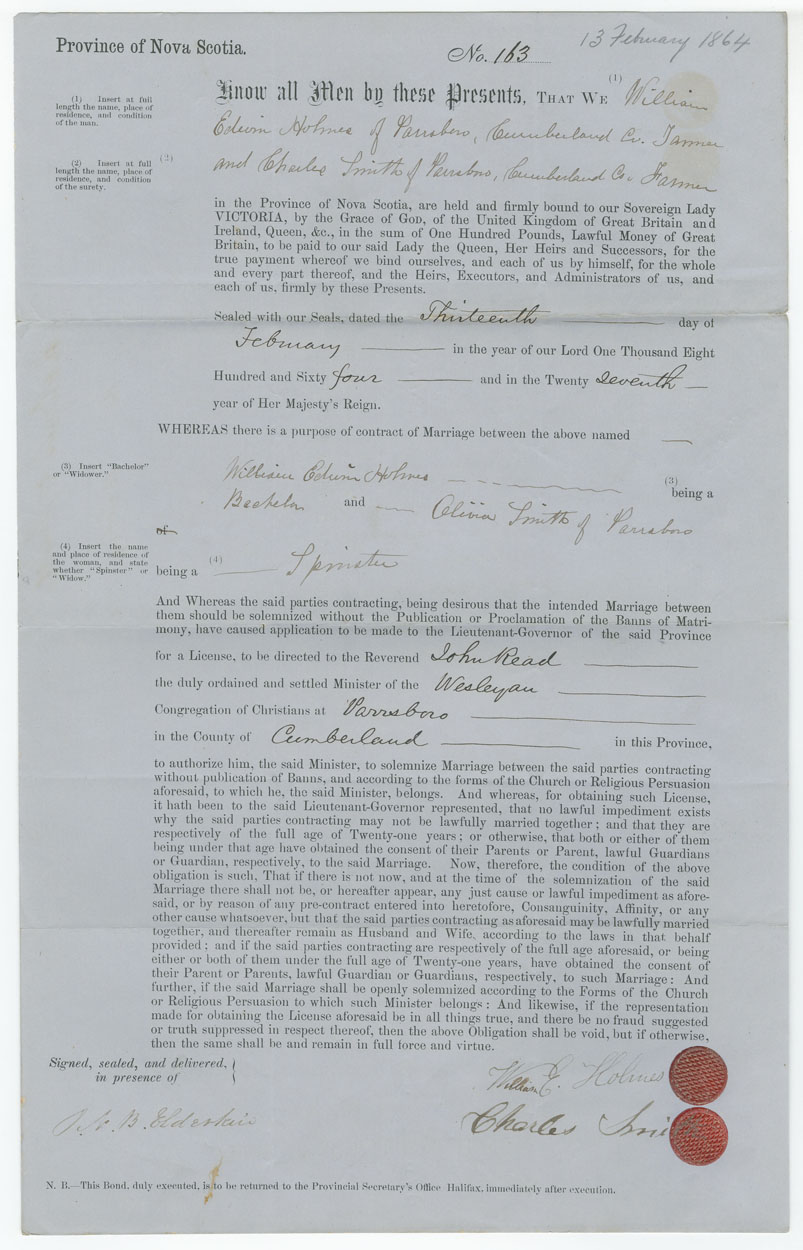 13 February 1864
Province of Nova Scotia.
No. 163
Know all Men by these Presents, THAT WE (1) William
Edwin Holmes of Parrsboro, Cumberland Co. Farmer
(2) and Charles Smith of Parrsboro, Cumberland Co. Farmer
(1) Insert at full
length the name, place of
residence, and condition
of the man.
(2) Insert at full
length the name, place of
residence, and condition
of the surety.
in the Province of Nova Scotia, are held and firmly bound to our Sovereign Lady
VICTORIA, by the Grace of GOD, of the United Kingdom of Great Britain and
Ireland, Queen, &c., in the sum of One Hundred Pounds, Lawful Money of Great
Britain, to be paid to our said Lady the Queen, Her Heirs and Successors, for the
true payment whereof we bind ourselves, and each of us by himself, for the whole
and every part thereof, and the Heirs, Executors, and Administrators of us, and
each of us, firmly by these Presents.
Sealed with our Seals, dated the Thirteenth day of
February in the year of our Lord One Thousand Eight
Hundred and Sixty four and in the Twenty Seventh
year of Her Majesty's Reign.
WHEREAS there is a purpose of contract of Marriage between the above named
(3) Insert "Bachelor"
or "Widower."
William Edwin Holmes (3) being a
Bachelor and Olivia Smith of Parrsboro
of
(4) Insert the name
and place of residence of
the woman, and state
whether "Spinster" or
"Widow."
being a (4) Spinster
And Whereas the said parties contracting, being desirous that the intended Marriage between
them should be solemnized without the Publication or Proclamation of the Banns of Matri-
mony, have caused application to be made to the Lieutenant-Governor of the said Province
for a License, to be directed to the Reverend John Read
the duly ordained and settled Minister of the Wesleyan
Congregation of Christians at Parrsboro
in the County of Cumberland in this Province,
to authorize him, the said Minister, to solemnize Marriage between the said parties contracting
without publication of Banns, and according to the forms of the Church or Religious Persuasion
aforesaid, to which he, the said Minister, belongs. And whereas, for obtaining such License,
it hath been to the said Lieutenant-Governor represented, that no lawful impediment exists
why the said parties contracting may not be lawfully married together; and that they are
respectively of the full age of Twenty-one years; or otherwise, that both or either of them
being under that age have obtained the consent of their Parents or Parent, lawful Guardians
or Guardian, respectively, to the said Marriage. Now, therefore, the condition of the above
obligation is such, That if there is not now, and at the time of the solemnization of the said
Marriage there shall not be, or hereafter appear, any just cause or lawful impediment as afore-
said, or by reason of any pre-contract entered into heretofore, Consanguinity, Affinity, or any
other cause whatsoever, but that the said parties contracting as aforesaid may be lawfully married
together, and thereafter remain as Husband and Wife, according to the laws in that behalf
provided; and if the said parties contracting are respectively of the full age aforesaid, or being
either or both of them under the full age of Twenty-one years, have obtained the consent of
their Parent or Parents, lawful Guardian or Guardians, respectively, to such Marriage: And
further, if the said Marriage shall be openly solemnized according to the Forms of the Church
or Religious Persuasion to which such Minister belongs: And likewise, if the representation
made for obtaining the License aforesaid be in all things true, and there be no fraud suggested
or truth suppressed in respect thereof, then the above Obligation shall be void, but if otherwise,
then the same shall be and remain in full force and virtue.
Signed, sealed, and delivered,
in presence of
William E. Holmes
Charles Smith
B. Elderkin
N. B.—This Bond, duly executed, is to be returned to the Provincial Secretary's Office Halifax, immediately after execution.